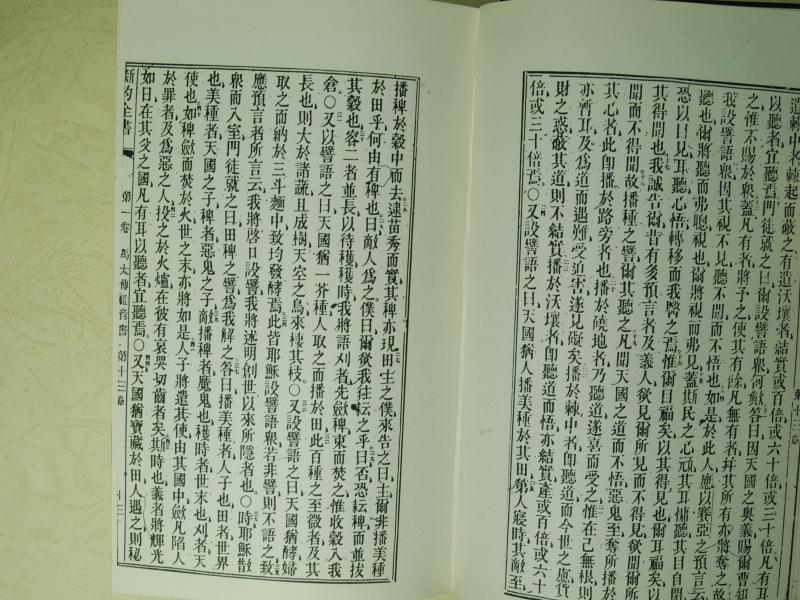 遺棘中者棘起而蔽之有遺沃壤者結實或百倍或六十倍或三十倍凡有耳
以聽者宜聽焉門徒就之曰爾設譬語衆何歟答曰因天國之奧義賜爾曹知
之惟不賜於衆蓋凡有者將予之使其有餘凡無有者幷其所有亦將奪之故
我設譬語衆因其視不見聽不聞而不悟也如是於此人應以賽亞之預言云
聽也爾將聽而弗聰視也爾將視而弗見蓋斯民之心頑其耳傭聽其目自閉
恐以目見耳聽心悟轉移而我醫之焉惟爾目福矣以其得見也爾耳福矣以
其得聞也我誠告爾昔有多預言者及義人欲見爾所見而不得見欲聞爾所
聞而不得聞故播種之譬爾其聽之凡聞天國之道而不悟惡鬼至奪所播於
其心者此卽播於路旁者也播於磽地者乃聽道遂喜而受之惟在己無根則
亦暫耳及爲道而遇難受迫害遂見礙矣播於棘中者卽聽道而今世之慮貨
財之惑蔽其道則不結實播於沃壤者卽聽道而悟亦結實產或百倍或六十
倍或三十倍焉○又設譬語之曰天國猶人播美種於其田第人寢時其敵至
播稗於穀中而去逮苗秀而實其稗亦現田主之僕來告之曰主爾非播美種
於田乎何由有稗也曰敵人爲之僕曰爾欲我往耘之乎曰否恐耘稗而並拔
其穀也容二者並長以待穫穫時我將語刈者先斂稗束而焚之惟收穀入我
倉○又以譬語之曰天國猶一芥種人取之而播於田此百種之至微者及其
長也則大於諸蔬且成樹天空之鳥來棲其枝○又設譬語之曰天國猶酵婦
取之而納於三斗麵中致均發酵焉此皆耶穌設譬語衆若非譬則不語之致
應預言者所言云我將啓口設譬我將述明創世以來所隱者也○時耶穌散
衆而入室門徒就之曰田稗之譬爲我解之答曰播美種者人子也田者世界
也美種者天國之子稗者惡鬼之子敵播稗者魔鬼也穫時者世末也刈者天
使也如稗斂而焚於火世之末亦將如是人子將遣其使由其國中斂凡陷人
於罪者及爲惡之人投之於火爐在彼有哀哭切齒者矣其時也義者將輝光
如日在其父之國凡有耳以聽者宜聽焉○又天國猶寶藏於田人遇之則秘
新約全書 第一卷 馬太傳福音書 第十三章